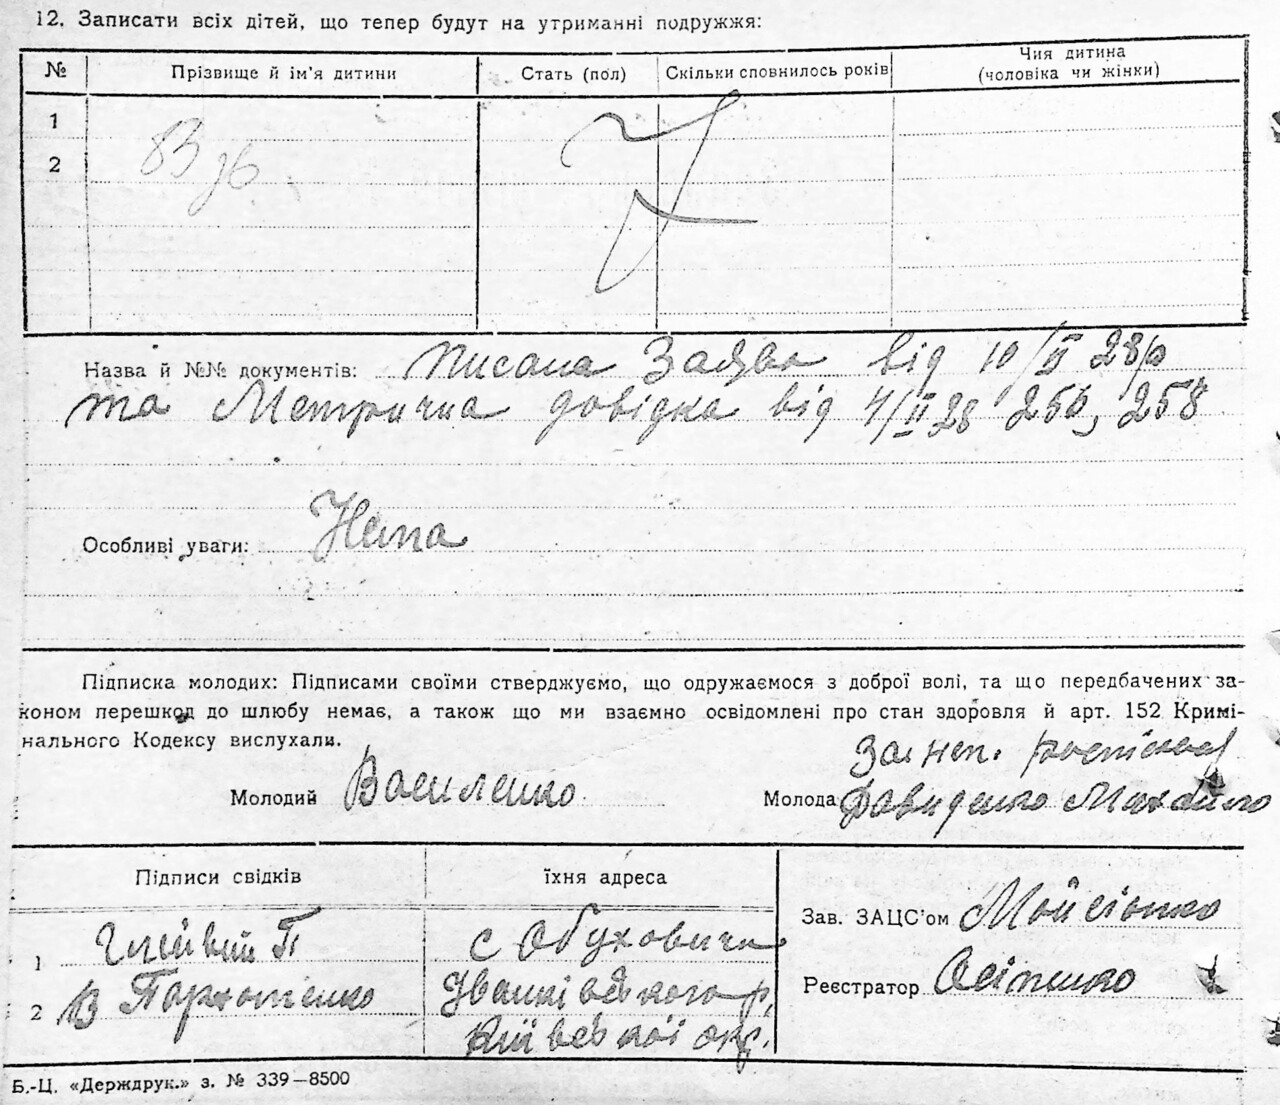 12. Записати всіх дітей, що тепер будут на утриманні подружжя:
№ Прізвище й ім'я дитини Стать (пол) Скільки сповнилось років Чия дитина (чоловіка чи жінки)
1
2
83
Назва й №№ документів: писана Заява від 10/II 28р
та Метрична довідка від 4/II 28 256, 258
Особливі уваги: Нема
Підписка молодих: Підписами своїми стверджуємо, що одружаємося з доброї волі, та що передбачених за-
коном перешкод до шлюбу немає, а також що ми взаємно освідомлені про стан здоровля й арт. 152 Кримі-
нального Кодексу вислухали.
За неп.
Молодий Василенко Молода Давиденко Михайло
Підписи свідків їхня адреса
Зав. ЗАЦС'ом Мойсіенко
1 П с Обуховичи
2 В Пархоменко Іванківського р.
Київської окр.
Реєстратор Осіпенко
Б.-Ц. «Держдрук.» з. № 339—8500